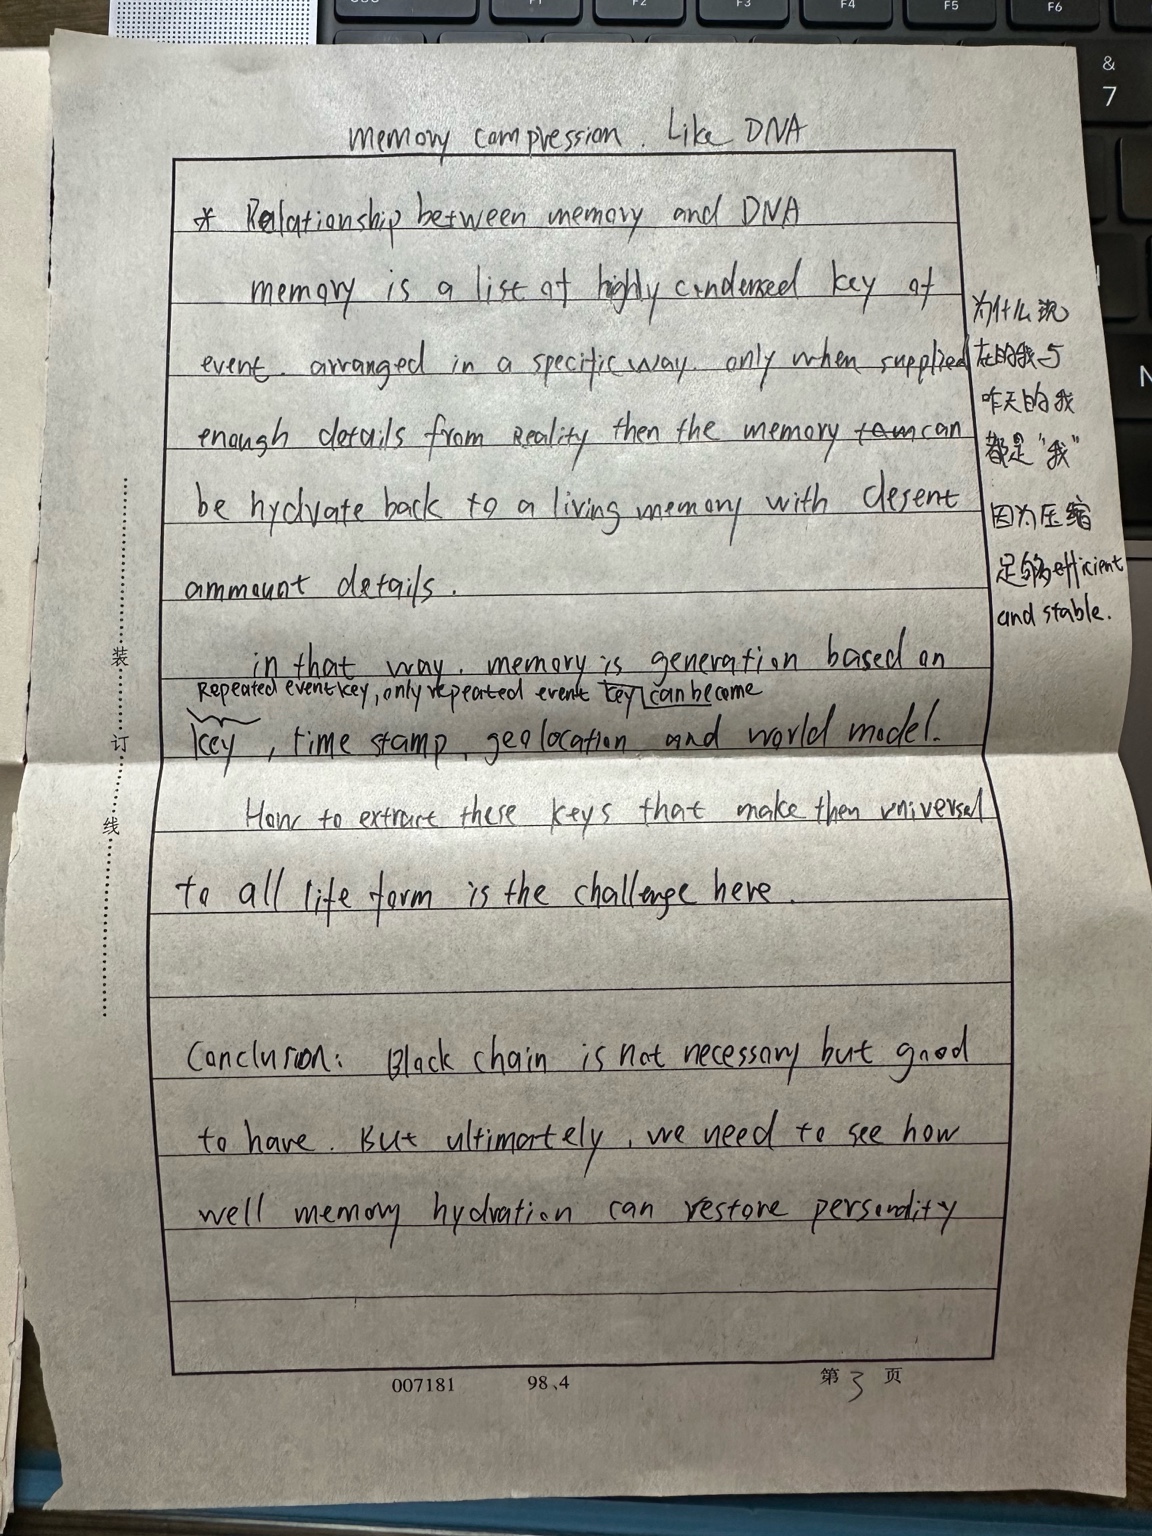 F1 F2 F3 F4 F5 F6
&
7
N
memory compression. Like DNA
* Relationship between memory and DNA
memory is a list of highly condensed key of
event. arranged in a specific way. only when supplied
enough details from Reality then the memory can
be hydrate back to a living memory with desent
ammount details.
in that way. memory is generation based on
Repeated event key, only repeated event key can become
key, time stamp, geolocation and world model.
How to extract these keys that make then universal
to all life form is the challenge here.
Conclusion: Block chain is not necessary but good
to have. But ultimately, we need to see how
well memory hydration can restore personality
为什么现
在的我与
昨天的我
都是“我”
因为压缩
足够efficient
and stable.
装
订
线
007181 98.4 第3页